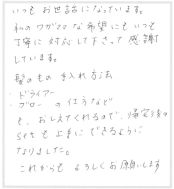 いつも お世話になっています。
私の ワガママ な 希望にも いつも
丁寧に 対応して下さって 感謝
しています。
髪のもの 手入れ方法
・ドライヤー
・ブローの仕方など
も、おしえてくれるので、帰宅後の
Setも上手にできるように
なりました。
これからも よろしくお願いします